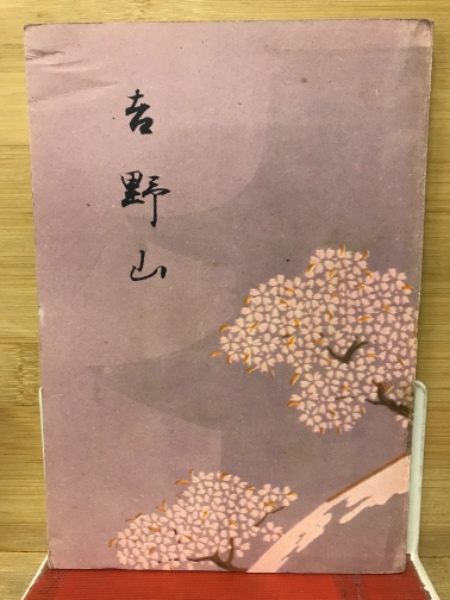 吉野山